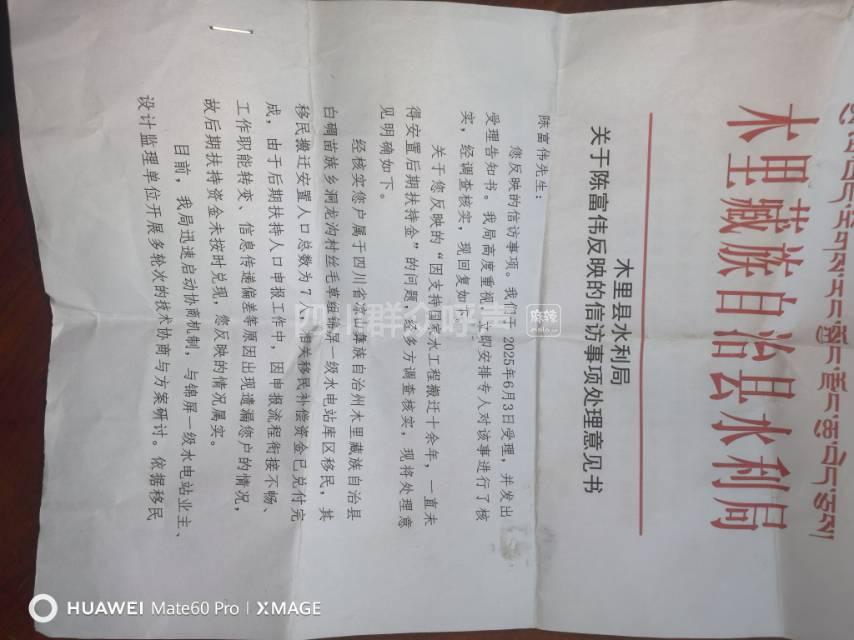 木里藏族自治县水利局
木里县水利局
关于陈富伟反映的信访事项处理意见书
陈富伟先生：
您反映的信访事项。我们于 2025年6月3日受理，并发出
受理告知书。我局高度重视，立即安排专人对该事进行了核
实，经调查核实，现回复如下：
关于您反映的“因支持国家水工程搬迁十余年，一直未
得安置后期扶持金”的问题，经多方调查核实，现将处理意
见明确如下。
经核实您户属于四川省凉山彝族自治州木里藏族自治县
白碉苗族乡洞龙沟村丝毛草组锦屏一级水电站库区移民，其
移民搬迁安置人口总数为7人，相关移民补偿资金已兑付完
成，由于后期扶持人口申报工作中，因申报流程衔接不畅、
工作职能转变、信息传递偏差等原因出现遗漏您户的情况，
故后期扶持资金未按时兑现，您反映的情况属实。
目前，我局迅速启动协商机制，与锦屏一级水电站业主、
设计监理单位开展多轮次的技术协商与方案研讨。依据移民
四川群众呼声
麻辣
HUAWEI Mate60 Pro | XMAGE